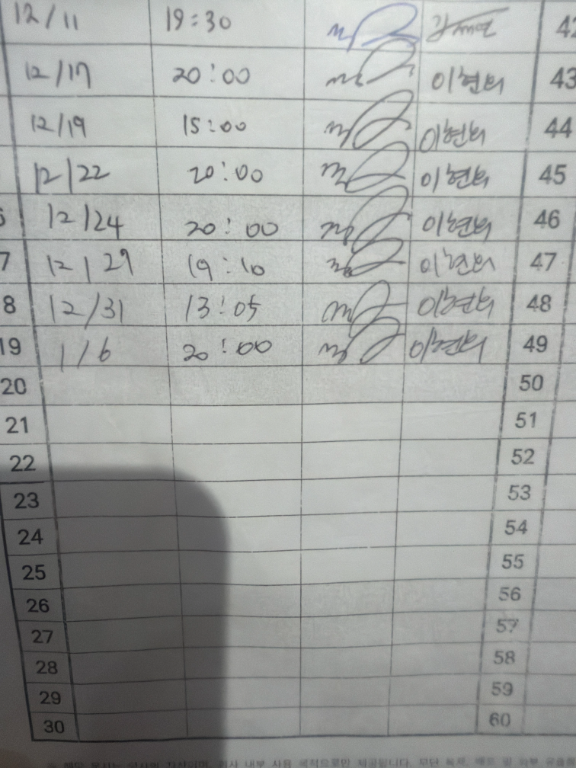 12/11 19:30 42
12/17 20:00 이현희 43
12/19 15:00 이현희 44
12/22 20:00 이현희 45
12/24 20:00 이현희 46
7 12/29 19:10 이현희 47
8 12/31 13:05 이현희 48
19 1/6 20:00 이현희 49
20 50
21 51
22 52
23 53
24 54
25 55
26 56
27 57
28 58
29 59
30 60